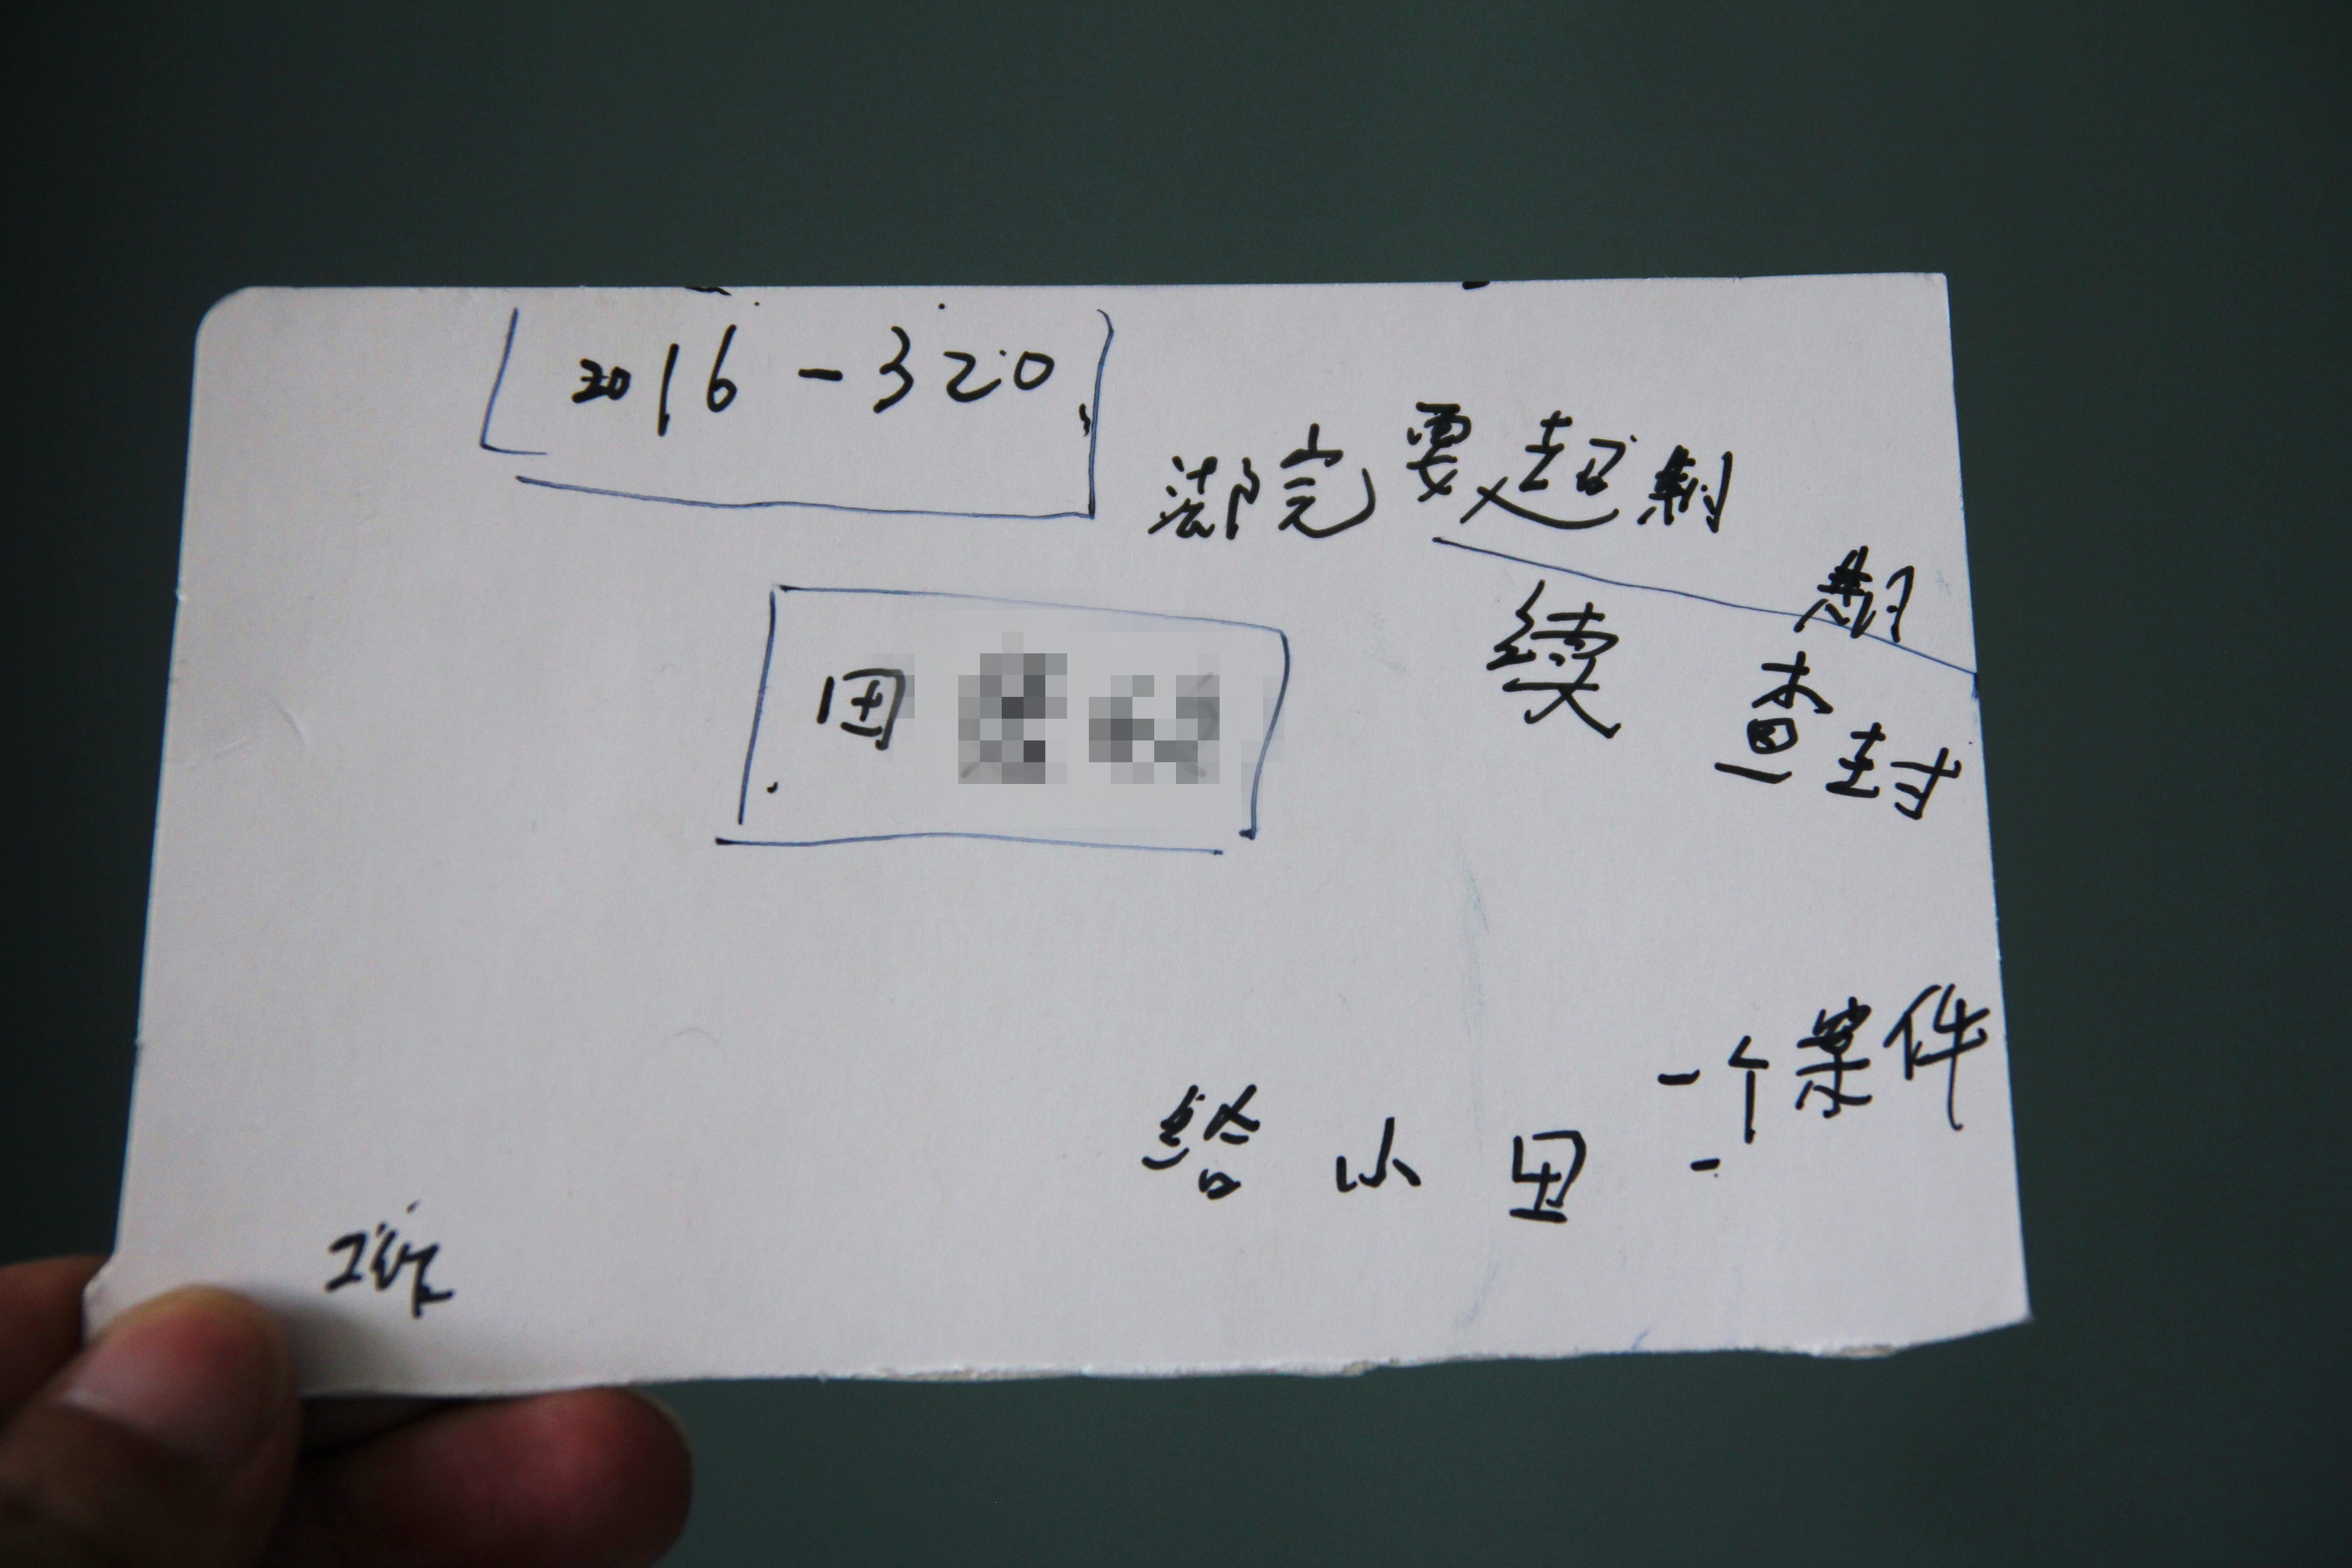 2016-320
要超期
期
田
续查封
一个案件
给小田-
工作